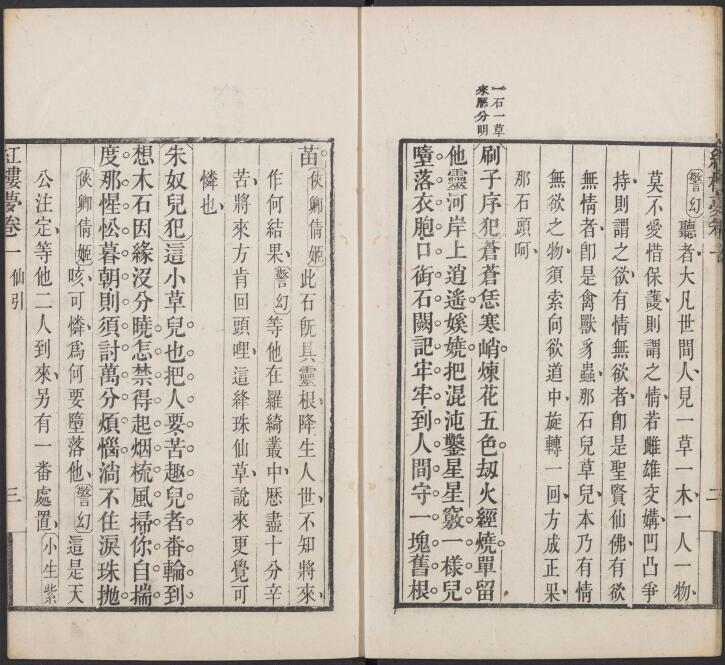 一石一草
來歷分明
警幻聽者大凡世間人見一草一木一人一物
莫不愛惜保護則謂之情若雌雄交媾凹凸爭
持則謂之欲有情無欲者卽是聖賢仙佛有欲
無情者卽是禽獸豸蟲那石兒草兒本乃有情
無欲之物須索向欲道中旋轉一回方成正果
那石頭阿
刷子序犯蒼蒼恁寒峭煉花五色刼火經燒單留
他靈河岸上逍遙媄嬈把混沌鑿星星竅一樣兒
墮落衣胞口銜石闕記牢牢到人間守一塊舊根
苗俠卿倩姬此石旣具靈根降生人世不知將來
作何結果警幻等他在羅綺叢中歷盡十分辛
苦將來方肯回頭哩這絳珠仙草說來更覺可
憐也
朱奴兒犯這小草兒也把人要苦趣兒者番輪到
想木石因緣沒分曉怎禁得起烟梳風掃你自揣
度那惺忪暮朝則須討萬分煩惱淌不住淚珠拋
俠卿倩姬咳可憐爲何要墮落他警幻這是天
公注定等他二人到來另有一番處置小生紫
紅樓夢卷一 仙引
三